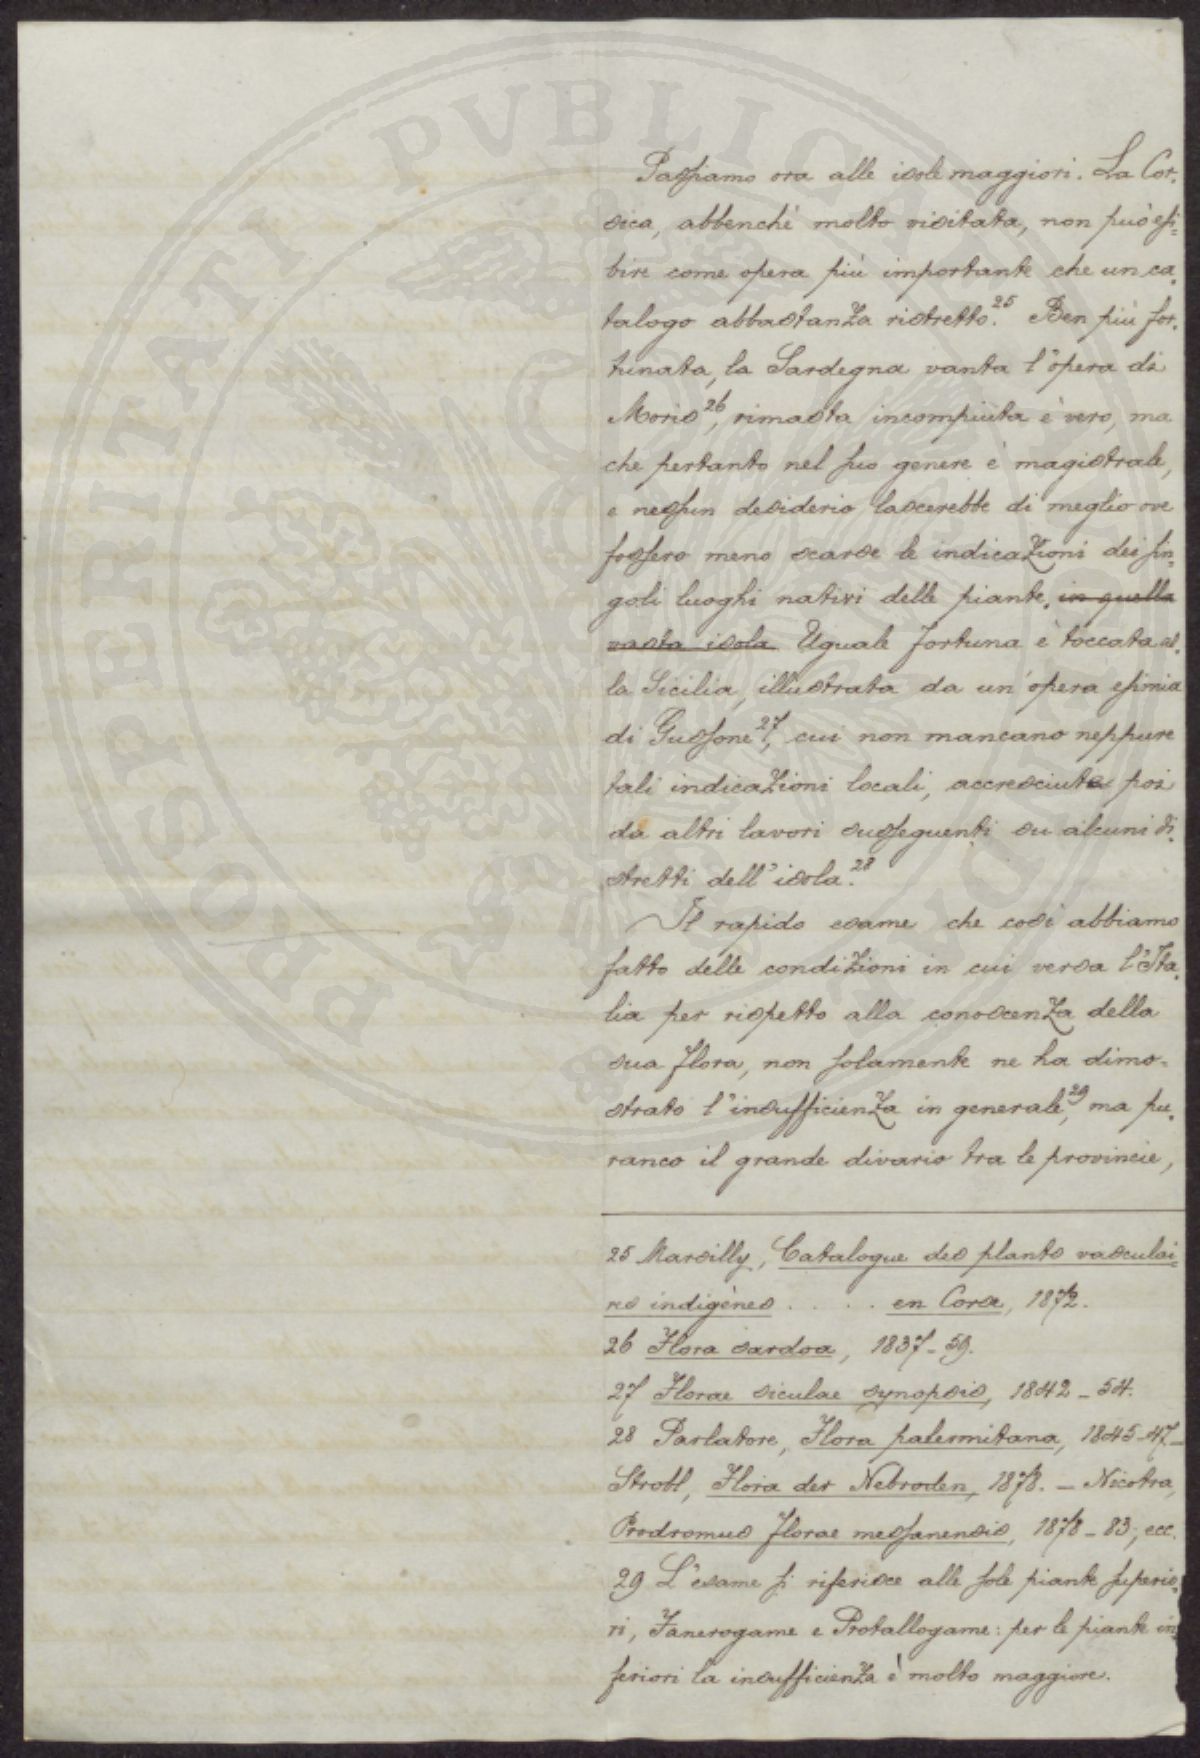 Passiamo ora alle isole maggiori. La Cor-
sica, abbenchè molto visitata, non può esi=
bire come opera più importante che un ca-
talogo abbastanza ristretto.25 Ben più for-
tunata, la Sardegna vanta l'opera di
Moris26, rimasta incompiuta è vero, ma
che pertanto nel suo genere è magistrale,
e nessun desiderio lascerebbe di meglio ove
fossero meno scarse le indicazioni dei sin=
goli luoghi nativi delle piante. in quella
vasta isola Uguale fortuna è toccata al-
la Sicilia, illustrata da un'opera esimia
di Gussone27, cui non mancano neppure
tali indicazioni locali, accresciute poi
da altri lavori susseguenti su alcuni di-
stretti dell'isola.28
Il rapido esame che così abbiamo
fatto delle condizioni in cui versa l'Ita-
lia per rispetto alla conoscenza della
sua flora, non solamente ne ha dimo-
strato l'insufficienza in generale,29 ma pu-
ranco il grande divario tra le provincie,
25 Marsilly, Catalogue des plants vasculai=
res indigènes . . . . en Corse, 1872.
26 Flora sardoa, 1837-59.
27 Florae siculae synopsis, 1842-54.
28 Parlatore, Flora palermitana, 1845-47-
Strobl, Flora der Nebroden, 1878. - Nicotra,
Prodromus florae messanensis, 1878-83; ecc.
29 L'esame si riferisce alle sole piante superio-
ri, Fanerogame e Protallogame: per le piante in
feriori la insufficienza è molto maggiore.
PROSPERITATI PVBLICAE